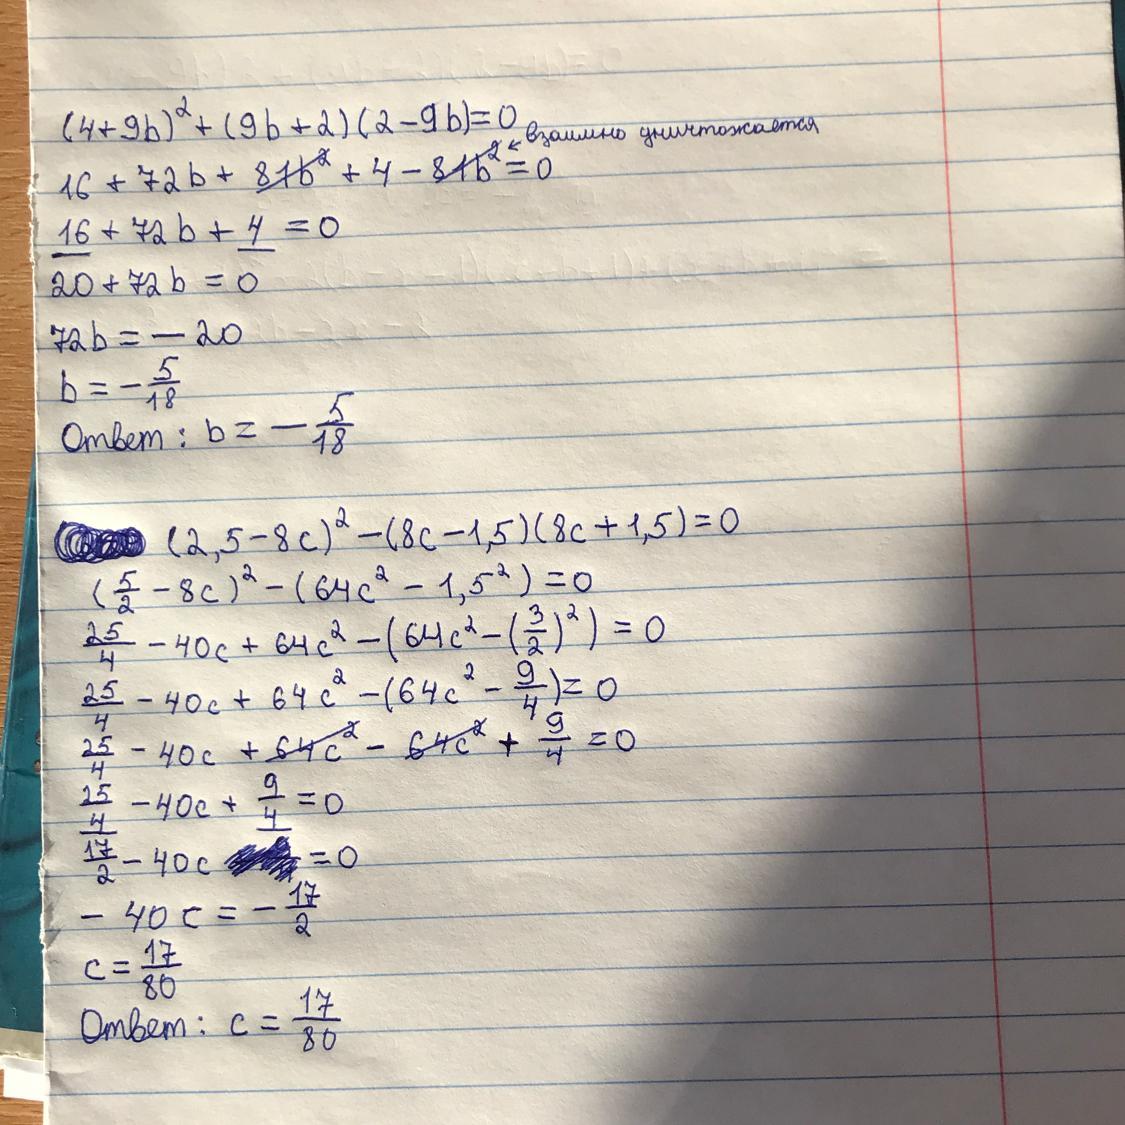 (4+9b)² + (9b+2)(2-9b)=0
взаимно уничтожается
16 + 72b + 81b² + 4 - 81b² = 0
16 + 72b + 4 = 0
20 + 72b = 0
72b = - 20
b = - 5/18
Ответ: b = - 5/18
(2,5-8c)² - (8c-1,5)(8c+1,5)=0
(5/2 - 8c)² - (64c² - 1,5²) = 0
25/4 - 40c + 64c² - (64c² - (3/2)²) = 0
25/4 - 40c + 64c² - (64c² - 9/4) = 0
25/4 - 40c + 64c² - 64c² + 9/4 = 0
25/4 - 40c + 9/4 = 0
17/2 - 40c = 0
- 40c = - 17/2
c = 17/80
Ответ: c = 17/80